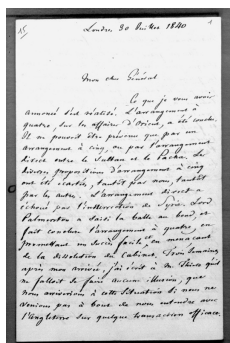 Londres 30 Juillet 1840
Mon cher Général
Ce que je vous avais
annoncé s'est réalisé. L'arrangement à
quatre, sur les affaires d'Orient, a été conclu.
Il ne pouvait être prévenu que par un
arrangement à cinq, ou par l'arrangement
direct entre le Sultan et le Pacha. Les
diverses propositions d'arrangement à cinq
ont été écartées, tantôt par nous, tantôt
par les autres. L'arrangement direct a
échoué par l'insurrection de Syrie. Lord
Palmerston a saisi la balle au bond, et
fait conclure l'arrangement à quatre, en
promettant un succès facile et en menaçant
de la dissolution du Cabinet. Trois semaines
après mon arrivée, j'ai écrit à M. Thiers qu'il
ne fallait se faire aucune illusion, que
nous arriverions à cette situation si nous ne
venions pas à bout de nous entendre avec
l'Angleterre sur quelque transaction efficace.